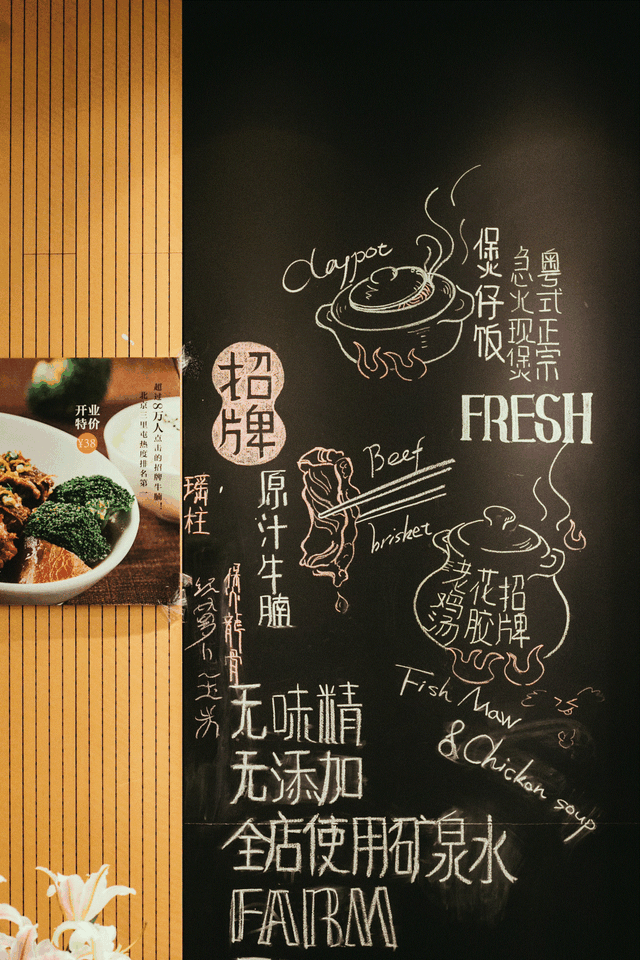 Claypot
煲仔饭
粤式正宗
急火现煲
FRESH
招牌
原汁牛腩
Beef
brisket
招牌
花胶
老鸡汤
Fish Maw
& Chicken soup
无味精
无添加
全店使用矿泉水
FARM
开业
特价
¥38
超过8万人点击的招牌牛腩！
北京三里屯热度排名第一